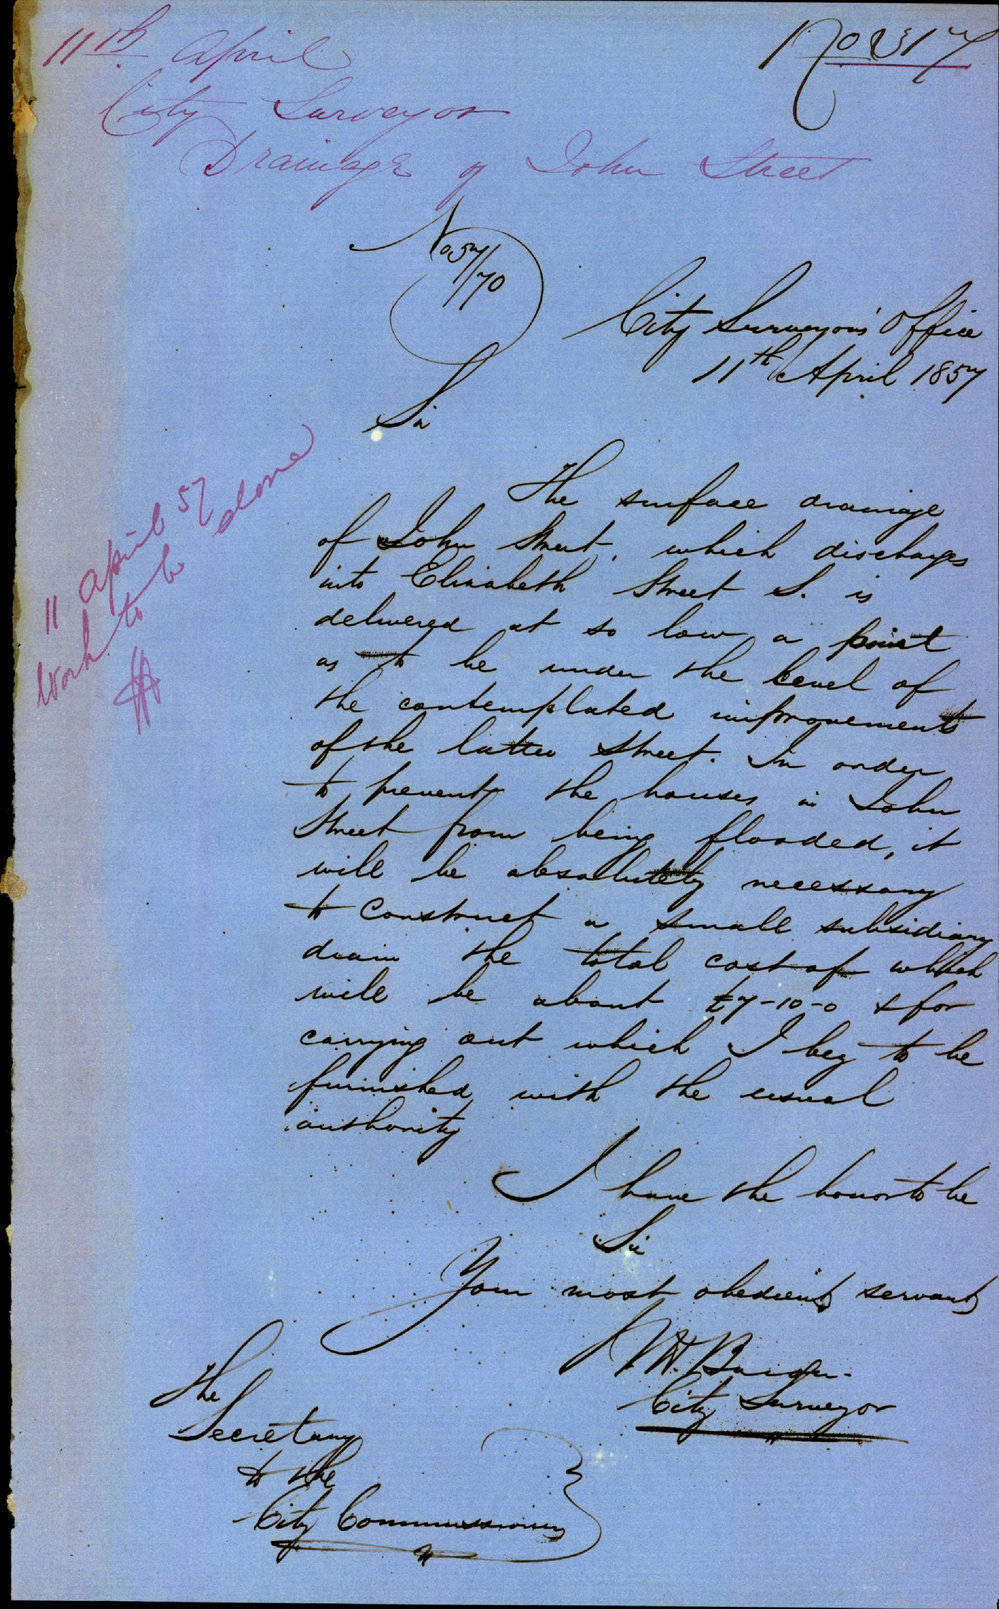 11th April
City Surveyor
Drainage of John Street
No 57/70
City Surveyor's Office
11th April 1857
Sir
The surface drainage
of John Street, which discharges
into Elizabeth Street S. is
delivered at so low a point
as to be under the level of
the contemplated improvements
of the latter Street. In order
to prevent the houses in John
Street from being flooded, it
will be absolutely necessary
to construct a small subsidiary
drain the total cost of which
will be about £7-10-0 & for
carrying out which I beg to be
furnished with the usual
authority
I have the honor to be
Sir
Your most obedient servant
City Surveyor
The
Secretary
to the
City Commissioners
11 April 57
Work to be done